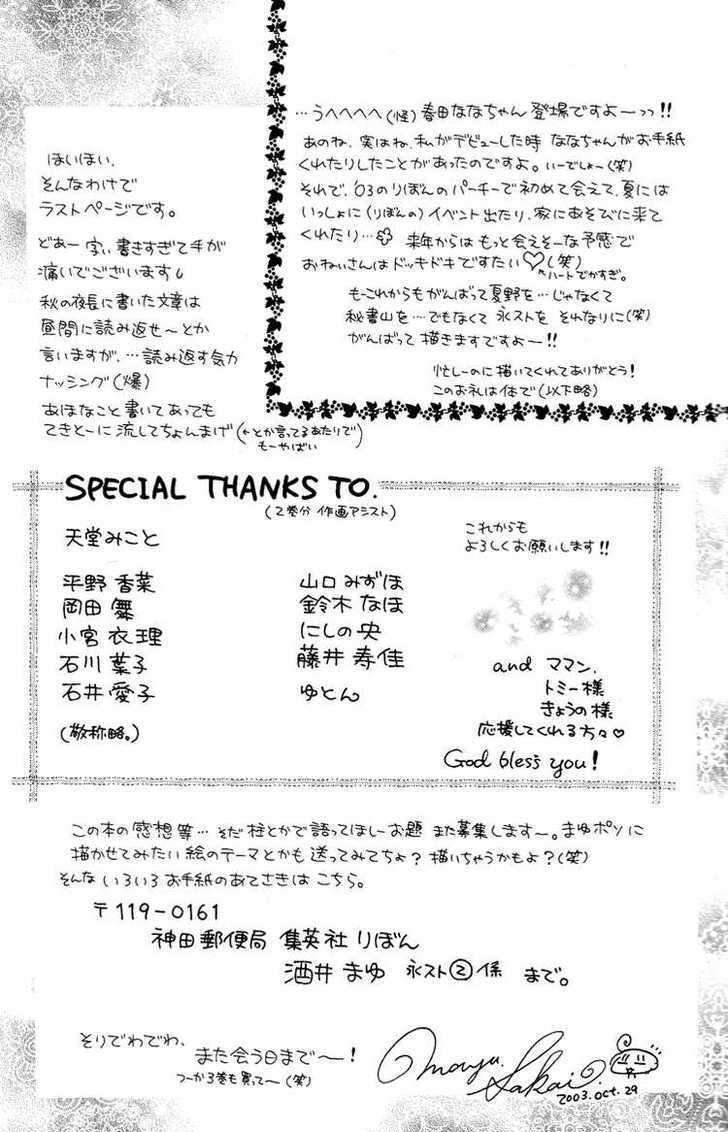 …うへへへへ(怪) 春田ななちゃん 登場ですよーっっ!!
あのね、実はね、私がデビューした時 ななちゃんがお手紙
くれたりしたことがあったのですよ。いーでしょー(笑)
それで、'03のりぼんのパーチーで初めて会えて、夏には
いっしょに(りぼんの)イベント出たり、家にあそびに来て
くれたり… 来年からは もっと会えそーな予感で
おねいさんはドッキドキですたい♡(笑)
ハートでかすぎ。
もーこれからもがんばって夏野を…じゃなくて
秘書山を…でもなくて 永ストを それなりに(笑)
がんばって 描きますですよー!!
忙しーのに描いてくれてありがとう!
このお礼は体で(以下略)
ほいほい、
そんなわけで
ラストページです。
どあー 字ぃ書きすぎて手が
痛いでございます
秋の夜長に書いた文章は
昼間に読み返せ〜とか
言いますが、…読み返す気力
ナッシング(爆)
あほなこと書いてあっても
てきとーに流してちょんまげ(←とか言ってるあたりで
もーやばい)
SPECIAL THANKS TO.
(2巻分 作画アシスト)
天堂みこと
平野 香菜
岡田 舞
小宮 衣理
石川 葉子
石井 愛子
(敬称略。)
山口 みずほ
鈴木 なほ
にしの 央
藤井 寿佳
ゆとん
これからも
よろしくお願いします!!
and ママン、
トミー様
きょうの様
応援してくれる方々♡
God bless you!
この本の感想等… そだ 柱とかで語ってほしーお題 また募集します〜。まゆポンに
描かせてみたい絵のテーマとかも 送ってみてちょ? 描いちゃうかもよ?(笑)
そんな いろいろ お手紙のあてさきは こちら。
〒119-0161
神田郵便局 集英社 りぼん
酒井 まゆ 永スト② 係 まで。
そりでわでわ、
また会う日まで〜!
つーか3巻も買って〜(笑)
Mayu Sakai
2003.oct.29